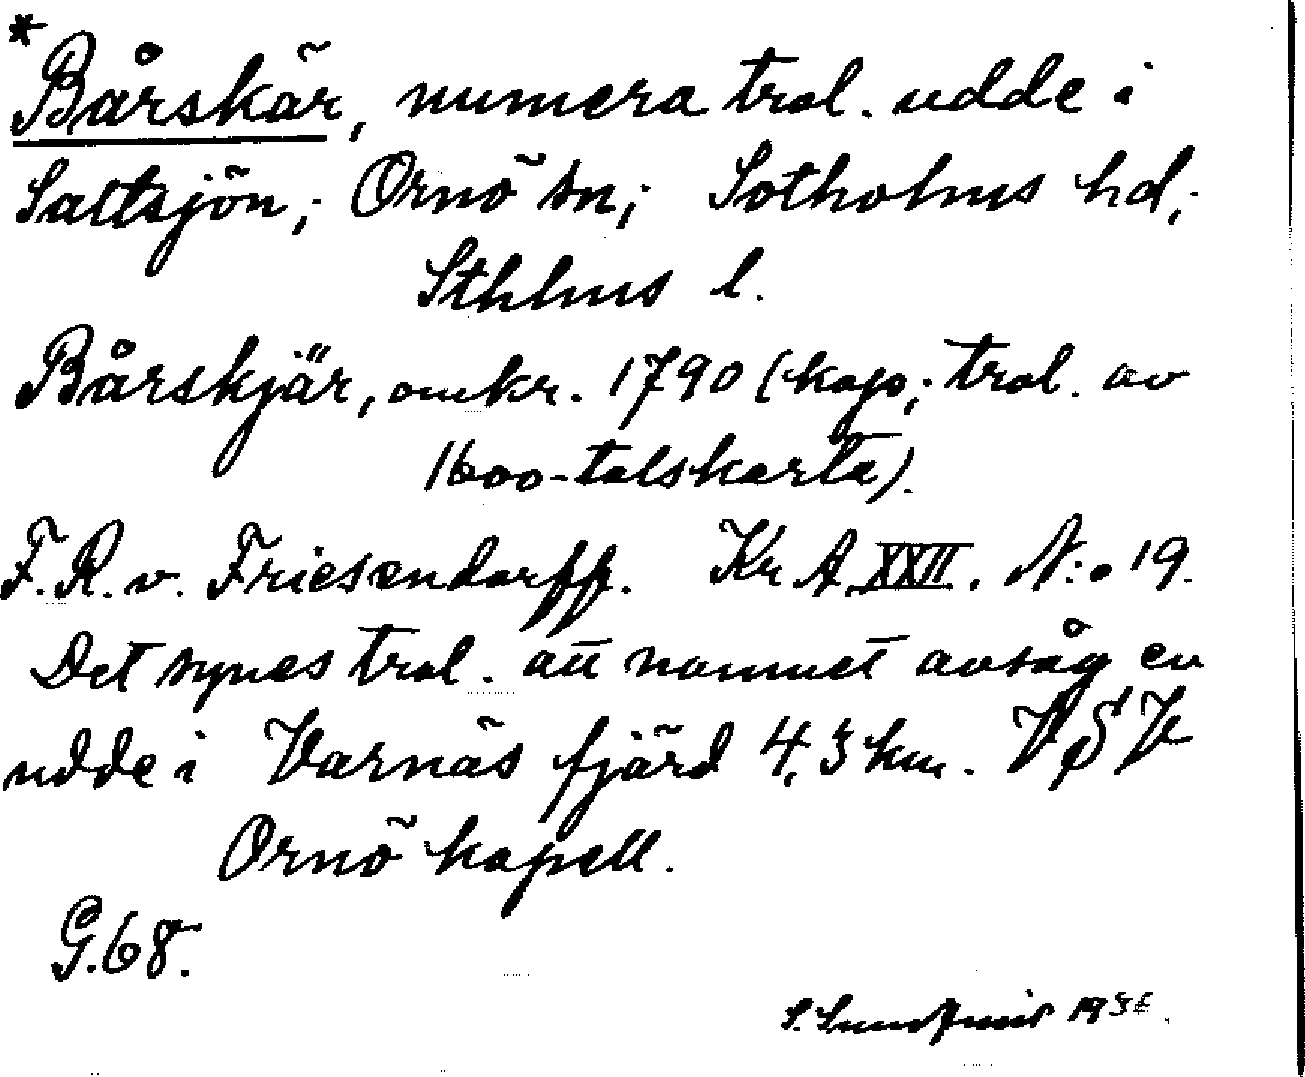 *Bårskär, numera trol. udde i
Saltsjön; Ornö sn; Sotholms hd;
Sthlms l.
Bårskjär, omkr. 1790 (kop; trol. av
1600-talskarta).
F.R. v. Friesendorff. Kr A XXII. N:o 19.
Det synes trol. att namnet avsåg en
udde i Varnäs fjärd 4,3 km. VSV
Ornö kapell.
G.68.
S. 19